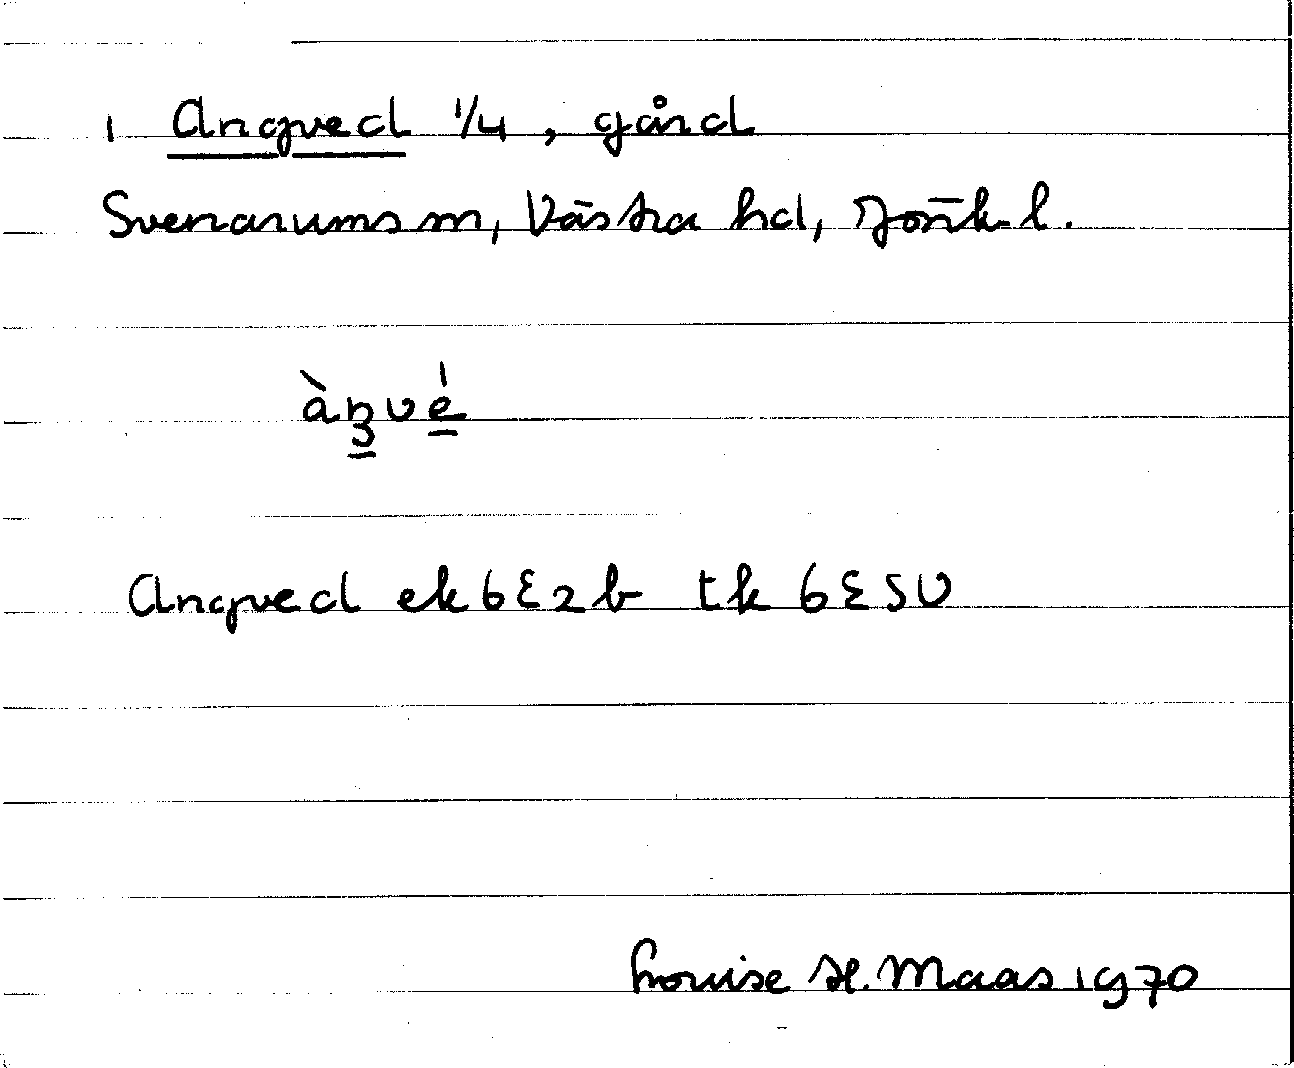 1 Angved 1/4, gård
Svenarums sn, Västra hd, Jönk. l.
Angved ek 6E2b tk 6E5U
Louise H. Maas 1970